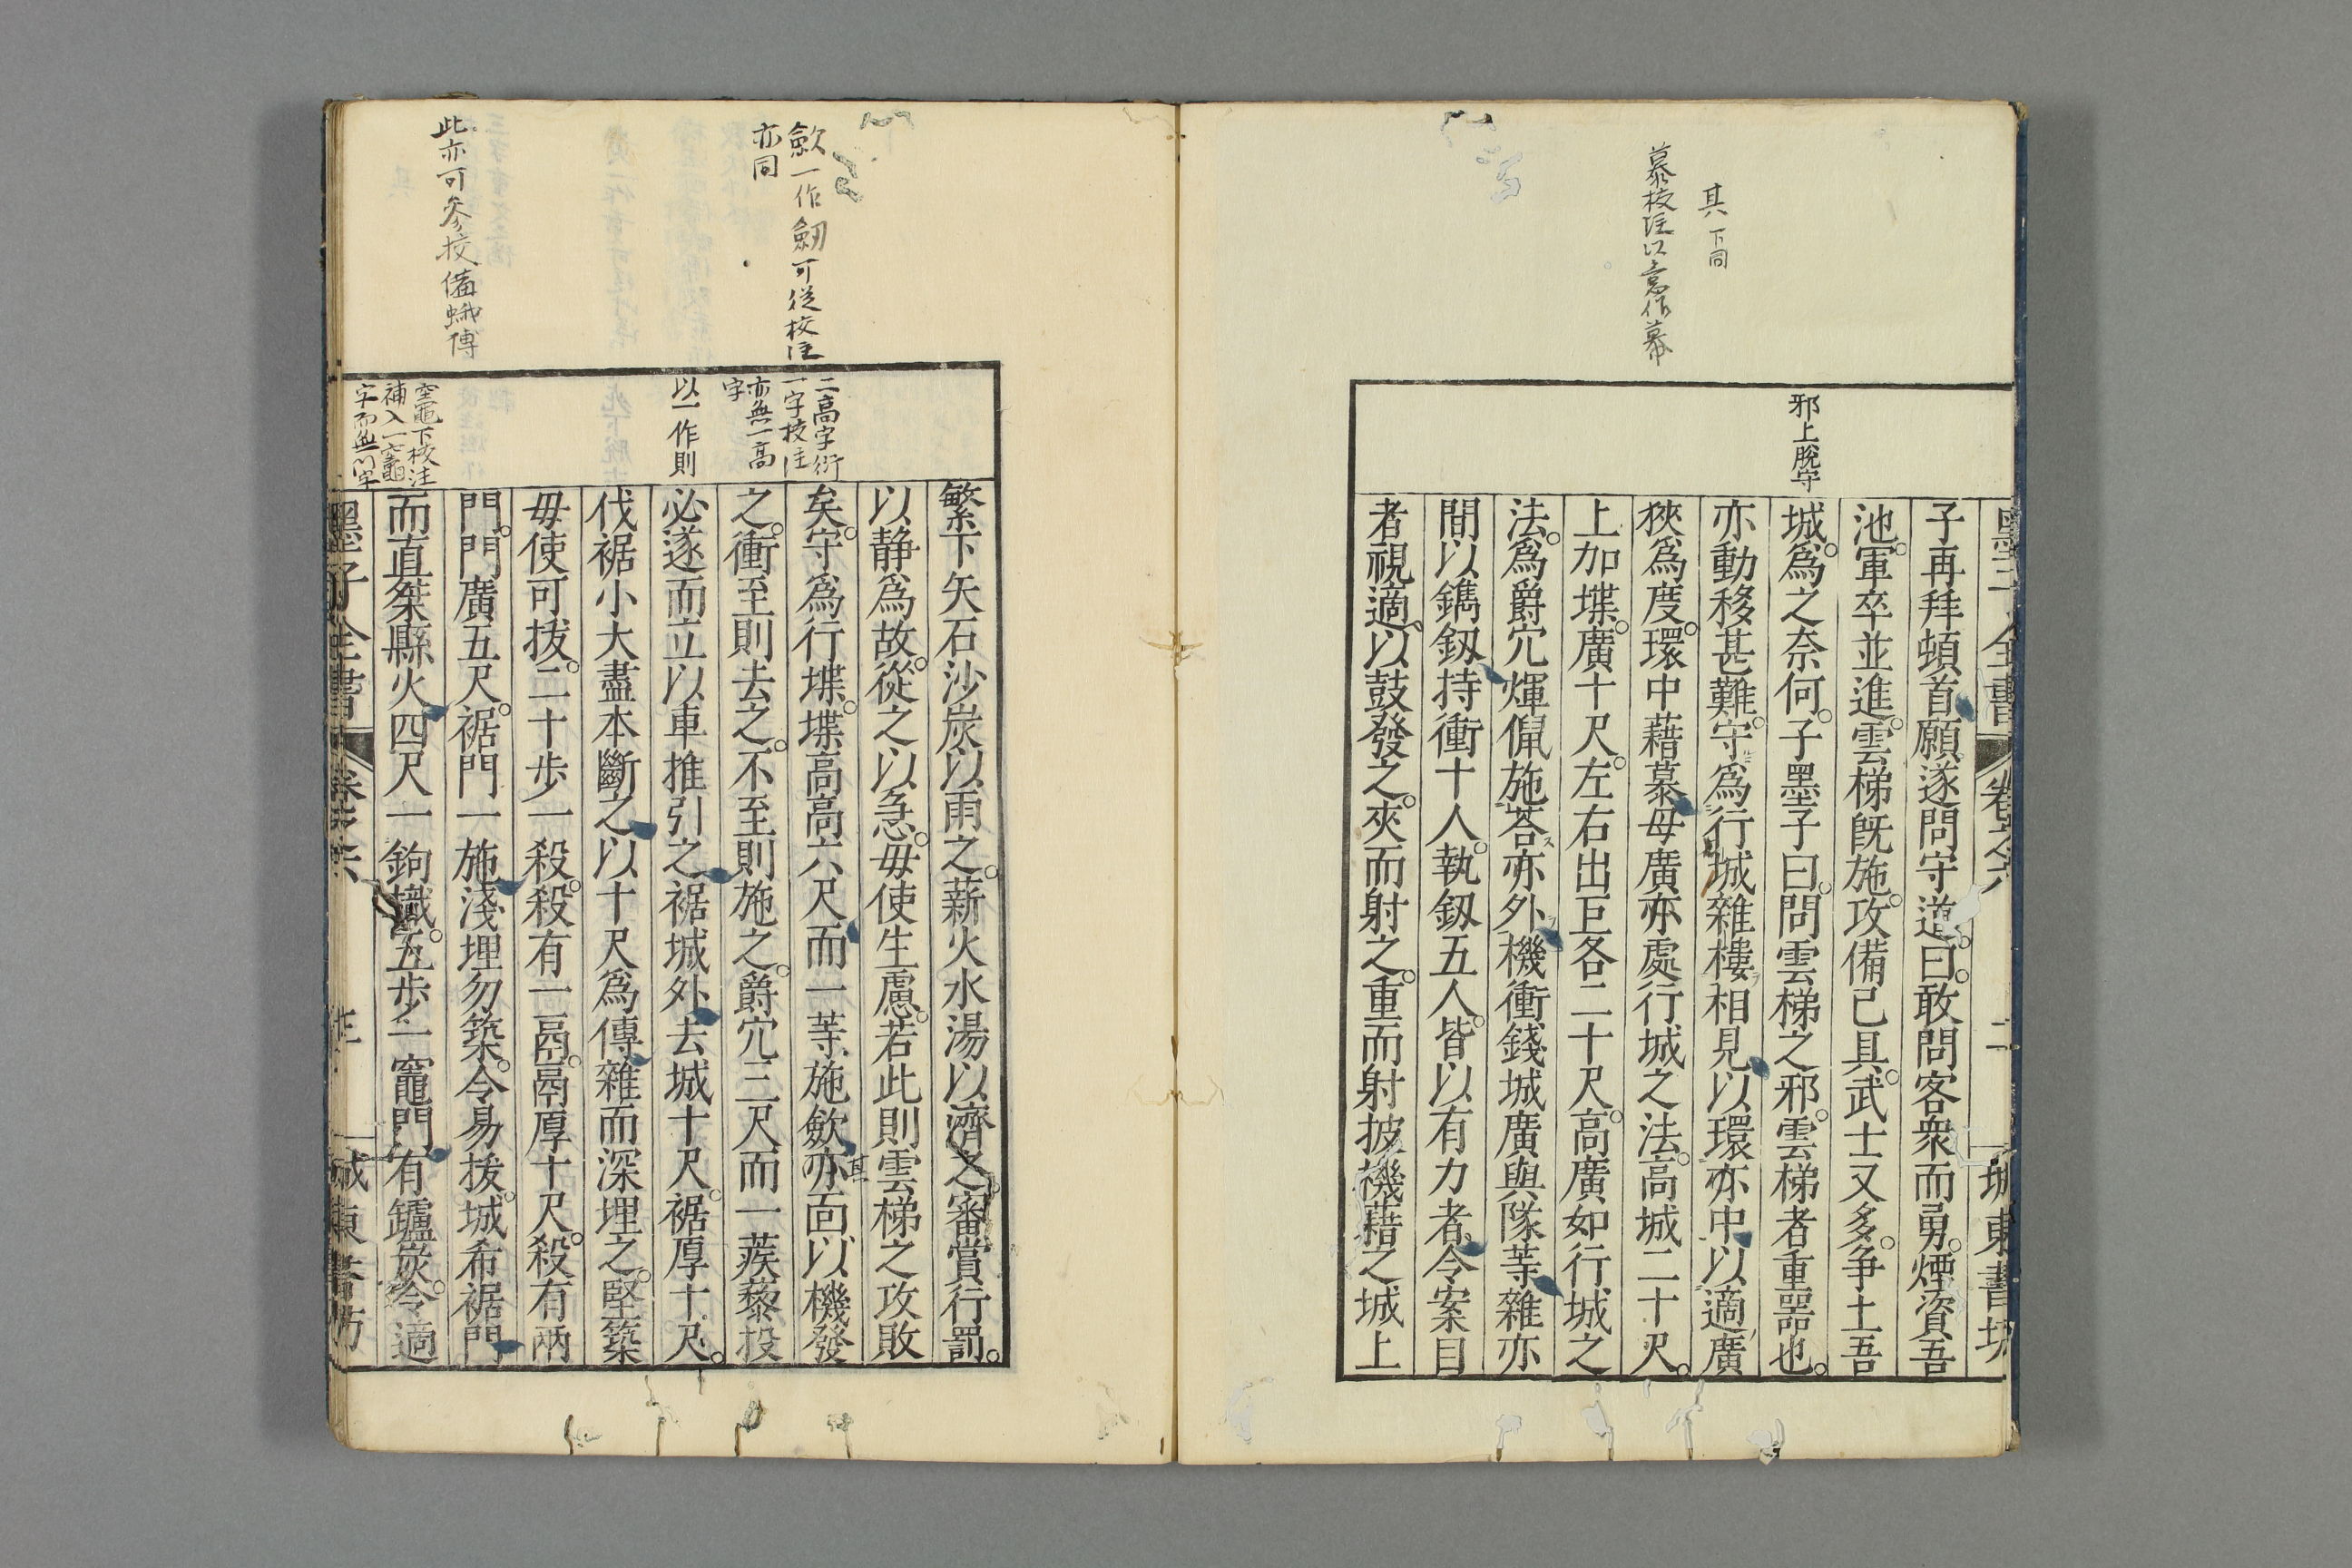 其下同
慕校注以意作幕
邪上脫守
墨子全書 卷之六 二 城東書坊
子再拜頓首願遂問守道曰敢問客衆而勇煙資吾
池。軍卒並進。雲梯旣施。攻備已具。武士又多。争土吾
城。爲之奈何。子墨子曰。問雲梯之邪。雲梯者重噐也。
亦動移甚難。守爲行城雜樓相見以環亦中以適廣
狹爲度。環中藉慕毋廣亦處行城之法。高城二十尺。
上加堞。廣十尺。左右出巨各二十尺。高廣如行城之
法。爲爵穴煇佩施荅亦外機衝錢城廣與隊䓁雜亦
間以鐫釼持衝十人。執釼五人。皆以有力者。令案目
者視適。以鼓發之。夾而射之。重而射披機藉之城上
歛一作劒可從校注
亦同
二高字衍
一字校注
亦無一高
字
以一作則
此亦可參校備蛾傅
空竈下校注
補入一竈
字而無門字
繁下矢石沙炭以雨之。薪火水湯以濟之審賞行罰。
以静爲故。從之以急。毋使生慮。若此則雲梯之攻敗
矣。守爲行堞。堞高高六尺而一䓁施歛亦其面以機發
之。衝至則去之。不至則施之。爵穴三尺而一蒺藜投
必遂而立以車推引之裾城外去城十尺。裾厚十尺。
伐裾小大盡本斷之以十尺爲傳雜而深埋之。堅築
毋使可拔。二十步一殺。殺有一鬲。鬲厚十尺。殺有兩
門。門廣五尺。裾門一施淺埋勿築。令易拔。城希裾門
而直桀縣火四尺一鉤樴。五步一竈門有鑪炭。令適
墨子全書 卷之六 城東書坊